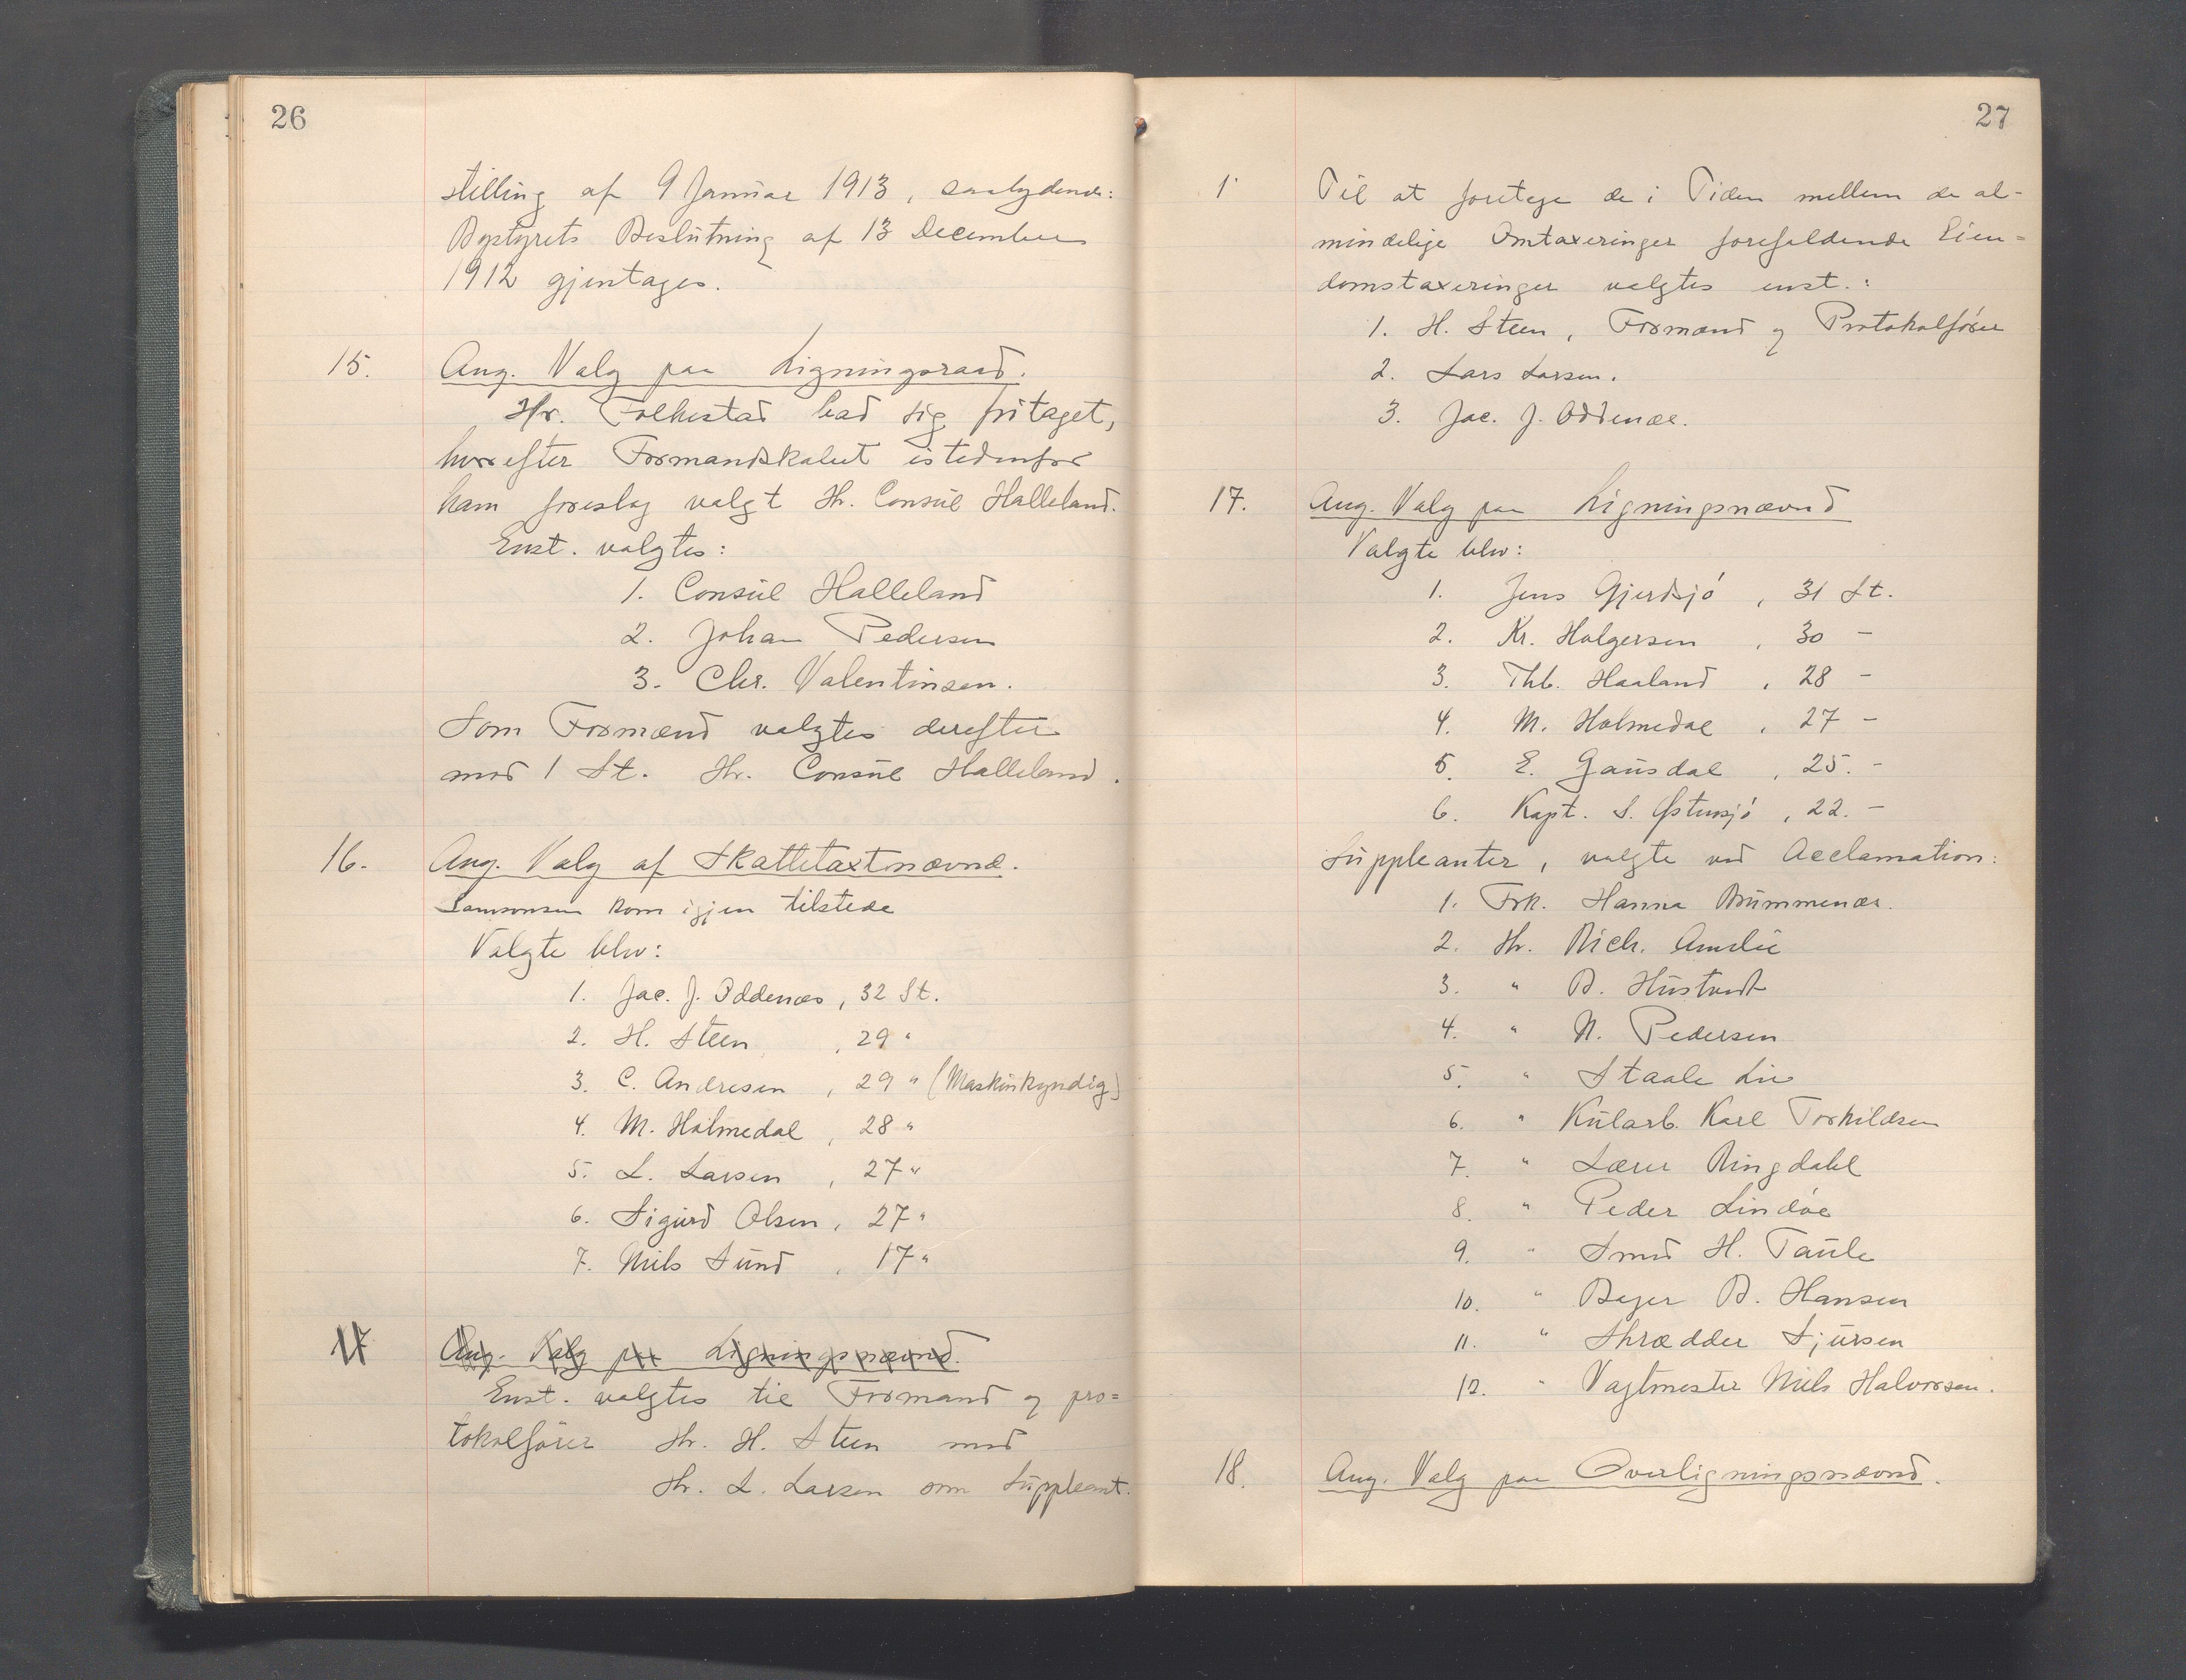 26
stilling af 9 Januar 1913, saalydende:
Bystyrets Beslutning af 13 December
1912 gjentages.
15. Ang. Valg paa Ligningsraad.
Hr. Folkestad bad sig fritaget,
hvorefter Formandskabet istedenfor
ham foreslog valgt Hr. Consul Halleland.
Enst. valgtes:
1. Consul Halleland
2. Johan Pedersen
3. Chr. Valentinsen.
Som Formand valgtes derefter
mod 1 St. Hr. Consul Halleland.
16. Ang. Valg af Skattetaxtnævnd.
Samsonsen kom igjen tilstede
Valgte blev:
1. Jac. J. Oddenæs, 32 St.
2. H. Steen, 29 "
3. C. Andresen, 29 " (Maskinkyndig)
4. M. Holmedal, 28 "
5. L. Larsen, 27 "
6. Sigurd Olsen, 27 "
7. Nils Sund, 17 "
17 Ang. Valg paa Ligningsnævnd.
Enst. valgtes til Formand og pro=
tokolfører Hr. H. Steen med
Hr. L. Larsen som Suppleant.
27
1 Til at foretage de i Tiden mellem de al-
mindelige Omtaxeringer forefaldende Eien=
domstaxeringer valgtes enst.:
1. H. Steen, Formand og Protokolfører
2. Lars Larsen.
3. Jac. J. Oddenæs.
17. Ang. Valg paa Ligningsnævnd
Valgte blev:
1. Jens Gjerdsjó, 31 St.
2. Kr. Holgersen, 30 -
3. Thb. Haaland, 28 -
4. M. Holmedal, 27 -
5. E. Gausdal, 25. -
6. Kapt. S. Østensjó, 22. -
Suppleanter, valgte ved Acclamation:
1. Frk. Hanna Brummenæs.
2. Hr. Rich. Amelie
3. " B. Hustvedt
4. " N. Pedersen
5. " Staale Lie
6. " Kularb. Karl Torkildsen
7. " Lærer Ringdahl
8. " Peder Lindøe
9. " Smed H. Taule
10. " Bager B. Hansen
11. " Skrædder Sjursen
12. " Vagtmester Nils Halvorsen.
18. Ang. Valg paa Overligningsnævnd.